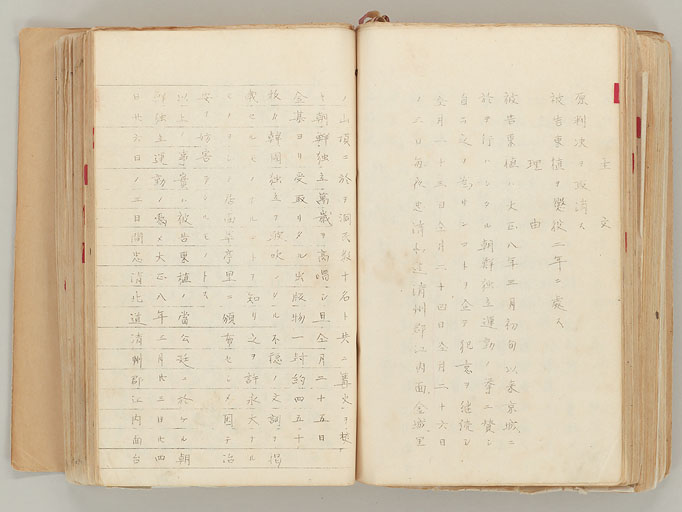 主文
原判決ヲ取消ス
被告東植ヲ懲役二年ニ處ス
理由
被告東植ハ大正八年三月初旬以来京城ニ
於テ行ハレタル朝鮮独立運動ノ擧ニ賛シ
自己又為サンコトヲ企テ犯意ヲ継続シ
仝月二十三日仝月二十四日仝月二十六日
ノ八日毎夜忠清北道清州郡江内面台城里
ノ山頂ニ於テ洞民数十名ト共ニ篝火ヲ焚
キ朝鮮独立萬歳ヲ高唱シ且仝月二十五日
金某ヨリ受取リタル出版物一封約四五十
枚ガ韓国独立ヲ鼓吹シタル不穏ノ文詞ヲ掲
載セルモノナルコトヲ知リ之ヲ許永大ナル
モノヲシテ居面等亭里ニ頒布セシメ因テ治
安ヲ妨害シタルモノトス
以上ノ事實ハ被告東植ノ當公廷ニ於ケル朝
鮮独立運動ノ為メ大正八年三月廿三日廿四
日廿六日ノ三日間忠清北道清州郡江内面台